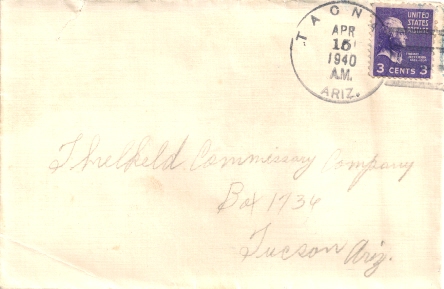 TAON
APR
15
1940
A.M.
ARIZ.
UNITED
STATES
3 CENTS 3
Threlkeld Commissary Company
Box 1734
Tucson Ariz.